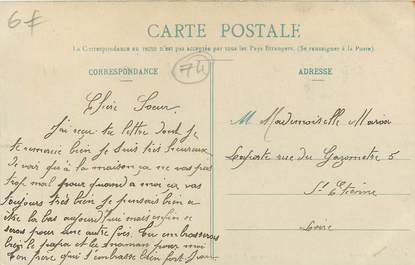 6€
CARTE POSTALE
La Correspondance au recto n'est pas acceptée par tous les Pays Étrangers. (Se renseigner à la Poste).
CORRESPONDANCE
74
ADRESSE
Chère Soeur.
J'ai reçu ta lettre dont je
te remercie bien je suis très heureux
de voir qu'à la maison ça ne vas pas
trop mal pour quand a moi ça vas
toujours très bien je pensais bien a
être la bas aujourd'hui mais enfin ce
seras pour une autre fois. Tu embrasseras
bien le papa et la maman pour moi
Ton frère qui t'embrasse bien fort
M Mademoiselle Maria
Laporte rue du Gazomètre 5
St Etienne
Loire